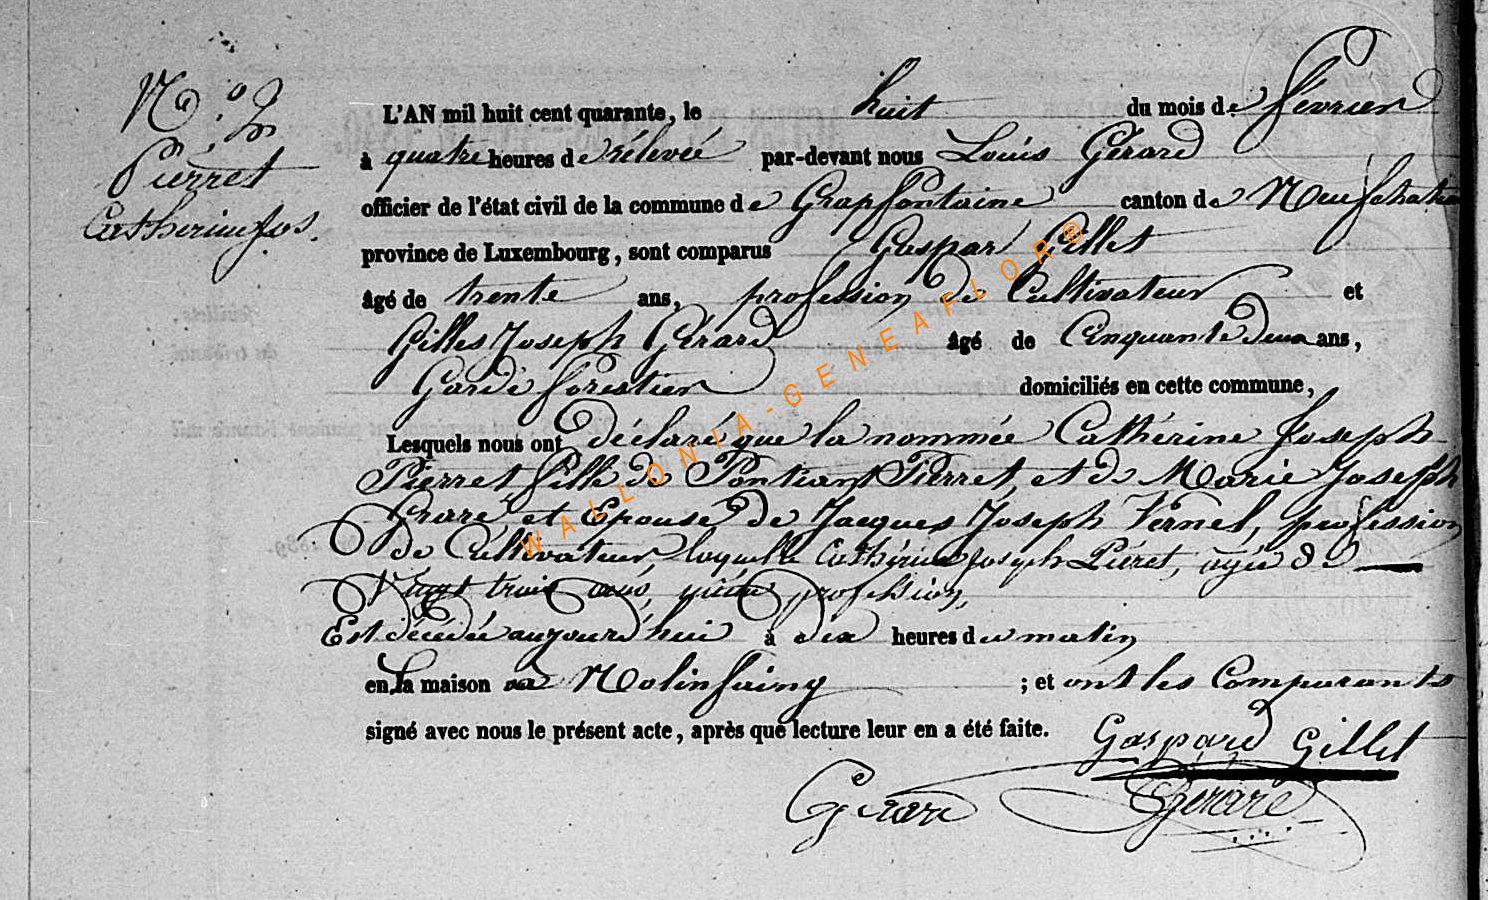 N.° 2
Pierret
Catherine Jos.
L'AN mil huit cent quarante, le huit du mois de février
à quatre heures de rélevée par-devant nous Louis Gérard
officier de l'état civil de la commune de Grapfontaine canton de Neufchateau
province de Luxembourg, sont comparus Gaspard Gillet
âgé de trente ans, profession de Cultivateur et
Gilles Joseph Gérard âgé de Cinquante deux ans,
Garde forestier domiciliés en cette commune,
Lesquels nous ont déclaré que la nommée Cathérine Joseph
Pierret fille de Pontiant Pierret, et de Marie Joseph
et Epouse de Jacques Joseph Vernel, profession
de Cultivateur, laquelle Cathérine Joseph Piéret, agée de
Vingt trois ans, profession,
Est décédée aujourd'hui à dix heures de matin
en la maison a Molinfaing ; et ont les Comparants
signé avec nous le présent acte, après que lecture leur en a été faite.
Gaspard Gillet
Gérard Gérard
WALLONIA-GENEAFLOR®